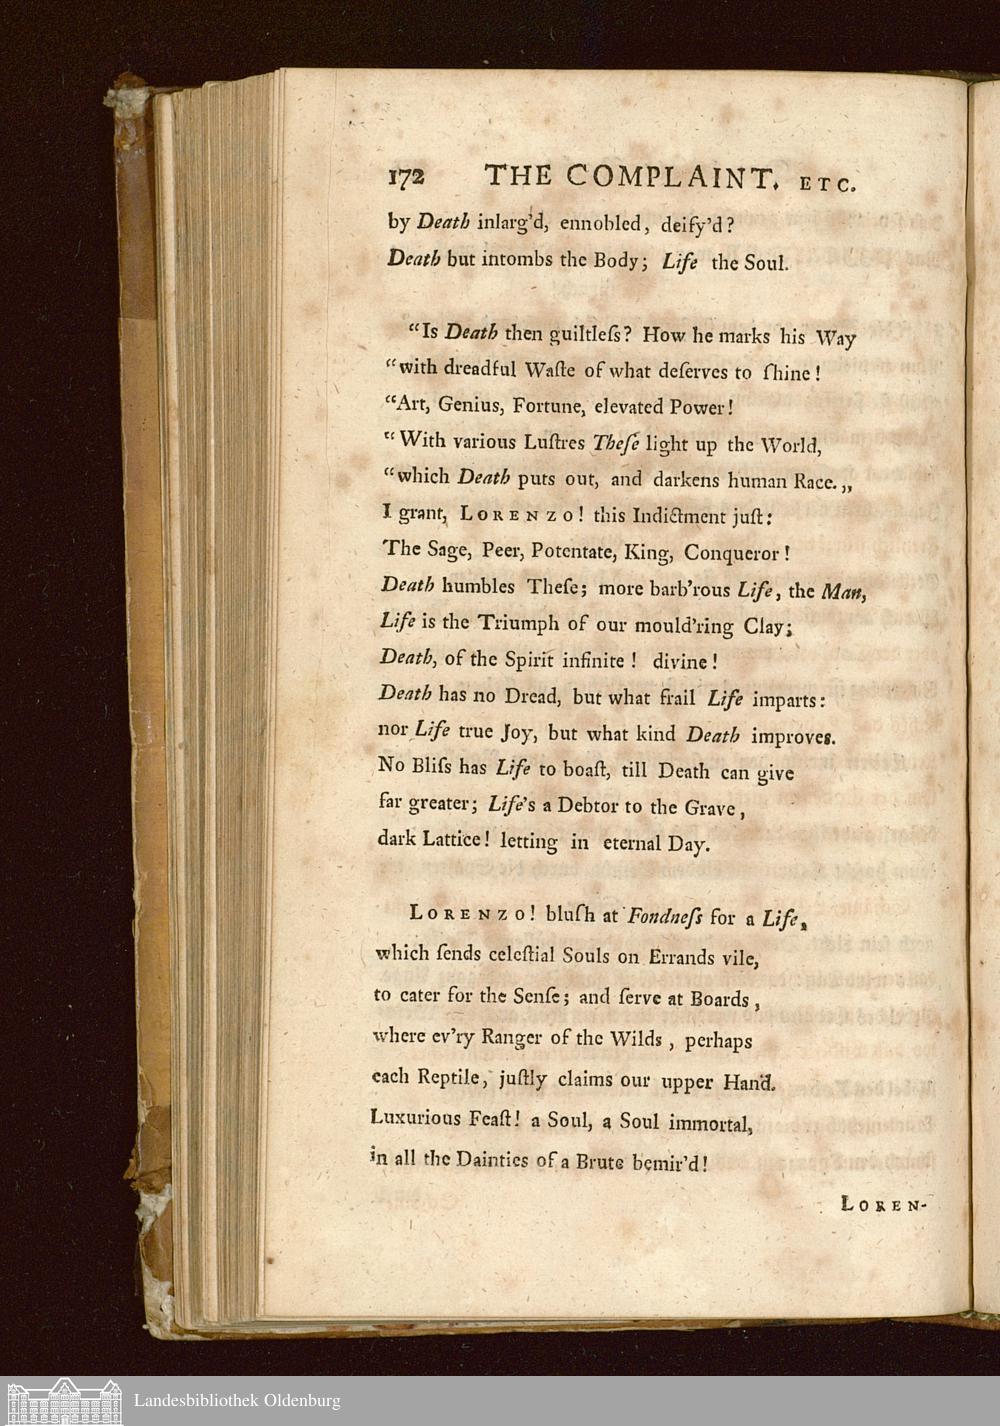 172 THE COMPLAINT, ETC.
by Death inlarg'd, ennobled, deify'd?
Death but intombs the Body; Life the Soul.
“Is Death then guiltleſs? How he marks his Way
“with dreadful Waſte of what deſerves to ſhine!
“Art, Genius, Fortune, elevated Power!
“With various Luſtres Theſe light up the World,
“which Death puts out, and darkens human Race.„
I grant, LORENZO! this Indictment juſt:
The Sage, Peer, Potentate, King, Conqueror!
Death humbles Theſe; more barb'rous Life, the Man,
Life is the Triumph of our mould'ring Clay;
Death, of the Spirit infinite! divine!
Death has no Dread, but what frail Life imparts:
nor Life true Joy, but what kind Death improves.
No Bliſs has Life to boaſt, till Death can give
far greater; Life's a Debtor to the Grave,
dark Lattice! letting in eternal Day.
LORENZO! bluſh at Fondneſs for a Life,
which ſends celeſtial Souls on Errands vile,
to cater for the Senſe; and ſerve at Boards,
where ev'ry Ranger of the Wilds, perhaps
each Reptile, juſtly claims our upper Hand.
Luxurious Feaſt! a Soul, a Soul immortal,
in all the Dainties of a Brute bemir'd!
LOREN-
Landesbibliothek Oldenburg